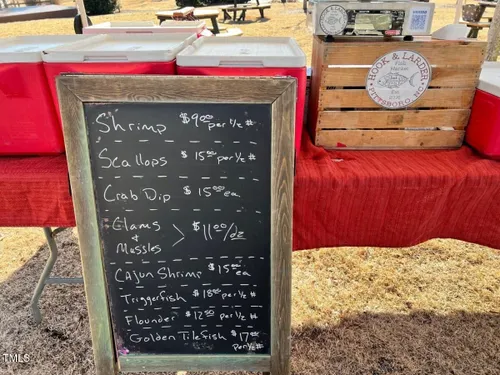 HOOK & LARDER
Fish Market
PITTSBORO NC
Shrimp $9.00 per 1/2 #
Scallops $15.00 per 1/2 #
Crab Dip $15.00 ea
Clams
& > $11.00/dz
Mussles
Cajun Shrimp $15.00 ea
Triggerfish $18.00 per 1/2 #
Flounder $12.50 per 1/2 #
Golden Tilefish $17.00
per 1/2 #
TMLS